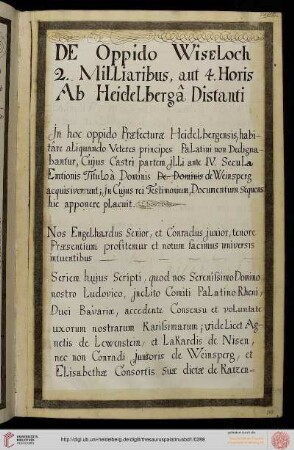 DE Oppido WisEloch
2. Milliaribus, aut 4. Horis
Ab HeidelBergâ Distanti
In hoc oppido Præfecturæ Heidelbergensis, habi-
tare aliquando Veteres principes PaLatini non Dedigna-
bantur, Cujus Castri partem, jlli ante IV. Secula
Emtionis Titulo à Dominis De Dominis de Weinsperg
acquisiverunt; in Cujus rei Testimonium, Documentum Sequens
hic apponere placuit.
Nos Engelhardus Senior, et Conradus junior, tenore
Præsentium profitemur et notum facimus universis
intuentibus
Seriem hujus Scripti, quod nos Serenissimo Domino
nostro Ludovico, jncLito Comiti PaLatino Rheni,
Duci Bavariæ, accedente Consensu et voluntate
uxorum nostrarum Karissimarum; videlicet Ag-
netis de Lewenstein, et Lakardis de Nisen,
nec non Conradi Junioris de Weinsperg, et
ELisabethæ Consortis Suæ dictæ de Katzen-
http://digi.ub.uni-heidelberg.de/diglit/thesauruspalatinusbd1/0299